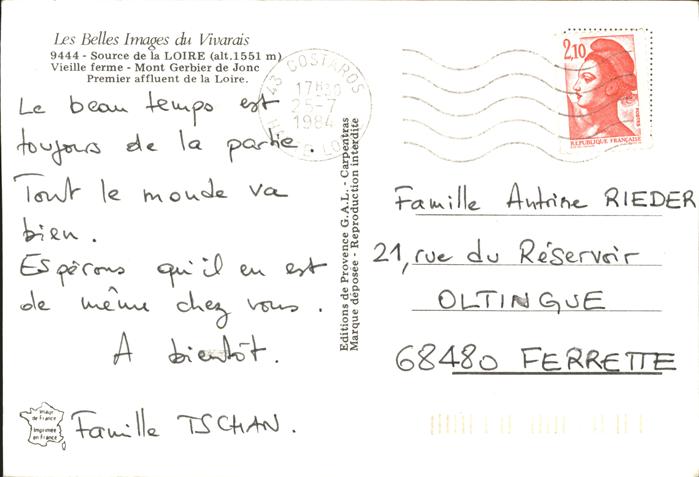 Les Belles Images du Vivarais
9444 - Source de la LOIRE (alt.1551 m)
Vieille ferme - Mont Gerbier de Jonc
Premier affluent de la Loire.
Le beau temps est
toujours de la partie.
Tout le monde va
bien.
Espérons qu'il en est
de même chez vous.
A bientôt.
Famille TSCHAN.
Image
de France
Imprimée
en France
Editions de Provence G.A.L. - Carpentras
Marque déposée - Reproduction interdite
43 COSTAROS
17H
25-7
1984
2,10
POSTES
REPUBLIQUE FRANÇAISE
Famille Antoine RIEDER
21, rue du Réservoir
OLTINGUE
68480 FERRETTE